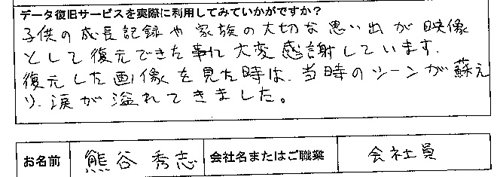 データ復旧サービスを実際に利用してみていかがですか?
子供の成長記録や家族の大切な思い出が映像
として復元できた事に大変感謝しています。
復元した画像を見た時は、当時のシーンが蘇え
り、涙が溢れてきました。
お名前 熊谷 秀志 会社名またはご職業 会社員